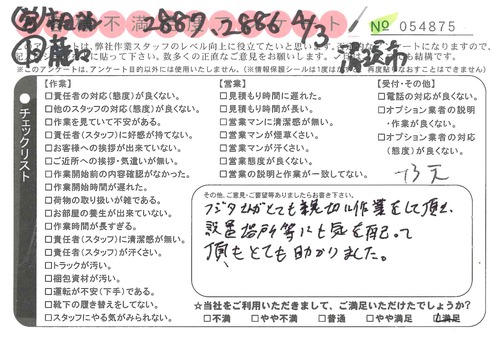 不満 ケート
2887.2886 4/3
№ 054875
このアンケートは、弊社作業スタッフのレベル向上に役立てたいと思います。
に貼って下さい。数多くの正直なご意見をお願いします。
※このアンケートは、アンケート目的以外には使用いたしません。（情報保護シールは1度は 再度貼りなおすことはできません）
チェックリスト
【作業】
□責任者の対応（態度）が良くない。
□他のスタッフの対応（態度）が良くない。
□作業を見ていて不安がある。
□責任者（スタッフ）に好感が持てない。
□お客様への挨拶が出来ていない。
□ご近所への挨拶・気遣いが無い。
□作業開始前の内容確認がなかった。
□作業開始時間が遅れた。
□荷物の取り扱いが雑である。
□お部屋の養生が出来ていない。
□作業時間が長すぎる。
□責任者（スタッフ）に清潔感が無い。
□責任者（スタッフ）が汗くさい。
□トラックが汚い。
□梱包資材が汚い。
□運転が不安（下手）である。
□靴下の履き替えをしてない。
□スタッフにやる気がみられない。
【営業】
□見積もり時間に遅れた。
□見積もり時間が長い。
□営業マンに清潔感が無い。
□営業マンが煙草くさい。
□営業マンが汗くさい。
□営業態度が良くない。
□営業の説明と作業が一致してない。
【受付・その他】
□電話の対応が良くない。
□オプション業者の説明
・作業が良くない。
□オプション業者の対応
（態度）が良くない。
その他、ご意見・ご要望等ありましたらお書き下さい。
フジタさんがとても親切に作業をして頂き、
設置場所等にも気を配って
頂きとても助かりました。
☆当社をご利用いただきまして、ご満足いただけたでしょうか？
□不満 □やや不満 □普通 □やや満足 ☑満足